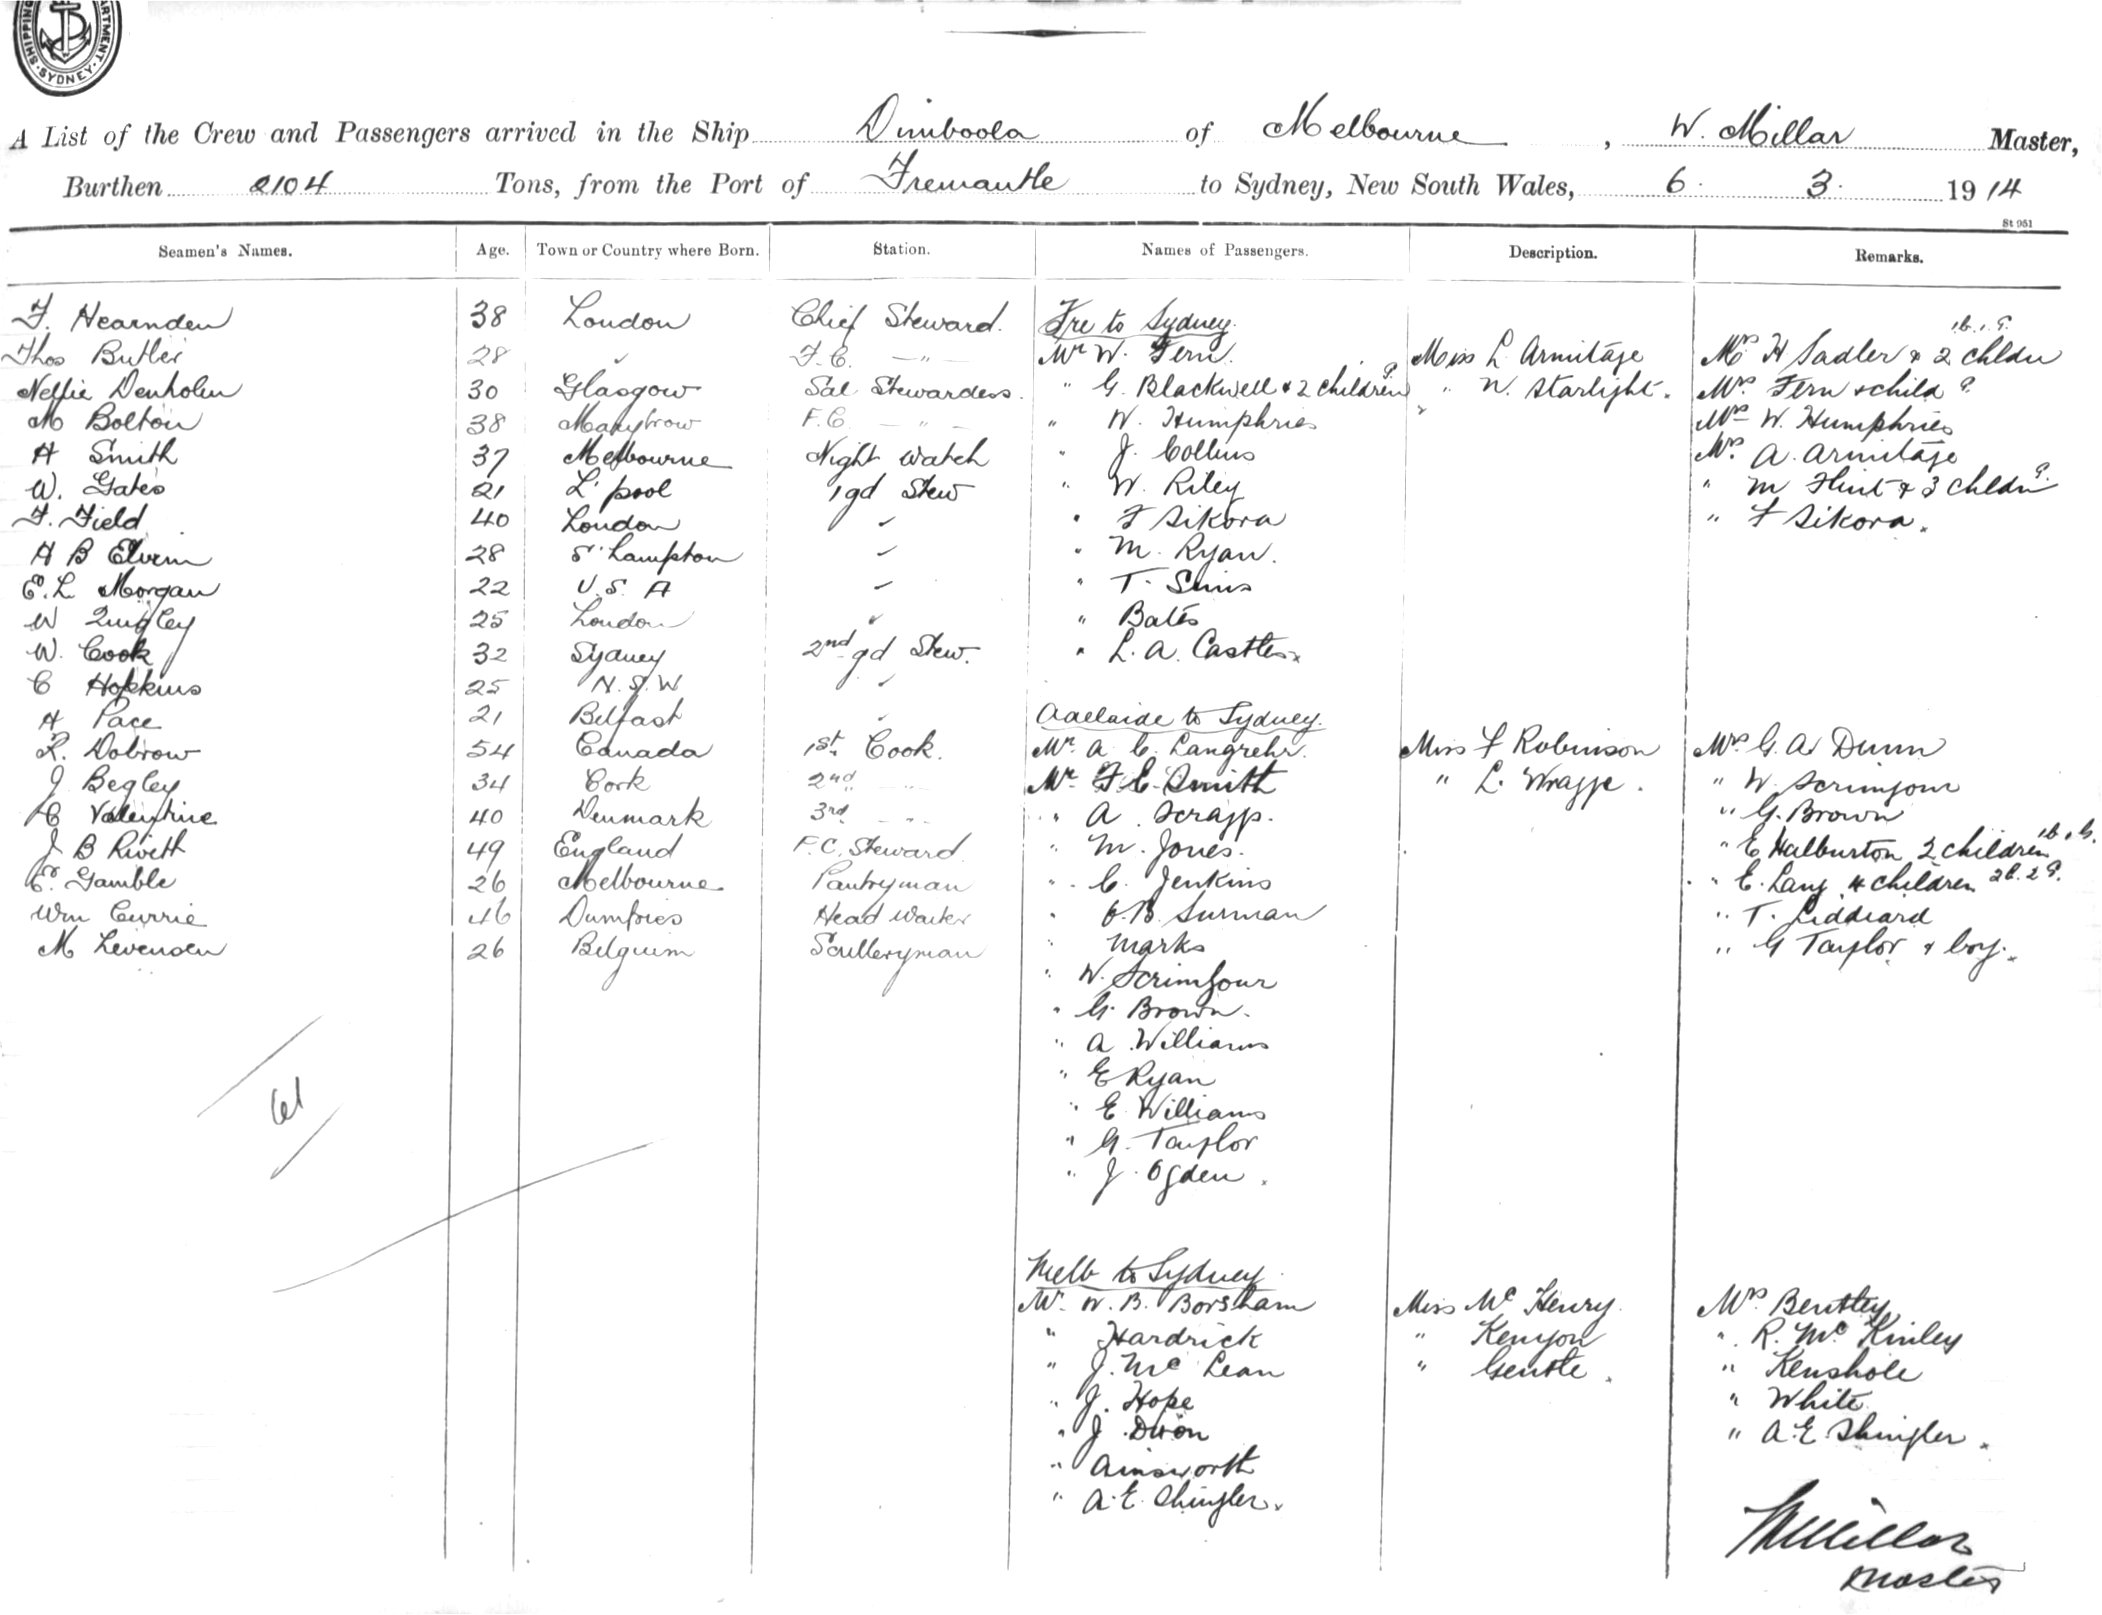 SHIPPING DEPARTMENT SYDNEY
A List of the Crew and Passengers arrived in the Ship Dimboola of Melbourne, W. Millar Master,
Burthen 2104 Tons, from the Port of Fremantle to Sydney, New South Wales, 6. 3. 1914
St 951
Seamen's Names. Age. Town or Country where Born. Station. Names of Passengers. Description. Remarks.
F. Hearnden 38 London Chief Steward. Fre to Sydney. 1b. 1g.
Thos Butler 28 ✓ F.C. —"— Mr W. Fern. Miss L Armitage Mrs H Sadler + 2 chldn
Nellie Denholm 30 Glasgow Sal Stewardess. " G. Blackwell & 2 children g. " N. Starlight. Mrs. Fern + child g
M Bolton 38 F.C. — " — " W. Humphries Mrs W. Humphries
A Smith 37 Melbourne Night Watch " J. Collins Mrs. A. Armitage
W. Gates 21 L'pool 1 gd Stew " W. Riley " M Flint & 3 chldn g.
F. Field 40 London ✓ " F Sikora " F Sikora.
A B Elvin 28 S'hampton ✓ " M. Ryan.
E. L Morgan 22 U.S.A ✓ " T. Sims
W Quigley 25 London ✓ " Bates
W. Cook 32 Sydney 2nd gd Stew. " L. A. Castles
C Hopkins 25 N.S.W ✓
A Pace 21 Belfast ✓ Adelaide to Sydney.
R. Dobrow 54 Canada 1st Cook. Mr. A C. Langrehr. Miss F Robinson Mrs G. A. Dunn
J Begley 34 Cork 2nd —"— Mr F. C. Smith " L. Wragge. " W. Scrimgour
C Valentine 40 Denmark 3rd —"— " A. Scragg. " G. Brown
J B Rivett 49 England F.C. Steward " M. Jones. " E Halburton 2 children 1b. 1g.
E. Gamble 26 Melbourne Pantryman " C. Jenkins " E. Lang 4 children 2b. 2g.
Wm Currie 46 Dumfries Head Waiter " O.B. Surman " T. Liddiard
M Levensen 26 Belguim Sculleryman " Marks " G Taylor & boy.
" W. Scrimgour
" G. Brown.
" A Williams
" E Ryan
61
" E Williams
" G. Taylor
" J. Ogden.
Melb to Sydney.
Mr. W. B. Borsham Miss Mc Henry. Mrs Bentley
" Hardrick " Kenyon " R. Mc Kinley
" J. Mc Lean " Gentle. " Kenshole
" J. Hope " White
" J Dixon " A. E. Shingler.
" Ainsworth
" A. E. Shingler.
W Millar
Master